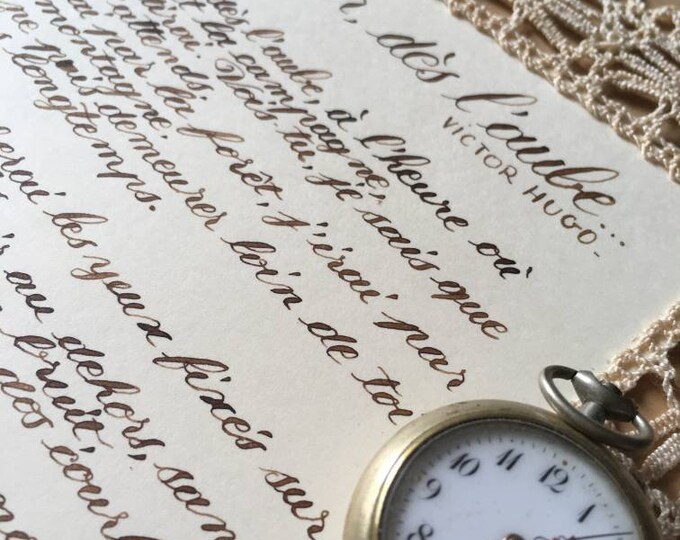 dès l'aube...
VICTOR HUGO.
dès l'aube, à l'heure où
la campagne,
attends, Vois-tu, je sais que
irai par la forêt, j'irai par
montagne.
ne puis demeurer loin de toi
longtemps.
les yeux fixés sur
au dehors, san
bruit,
dos cour
10 11 12
9
8